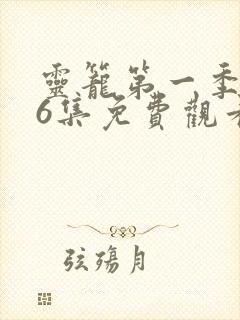 靈籠第一季
6集免費觀
弦殤月